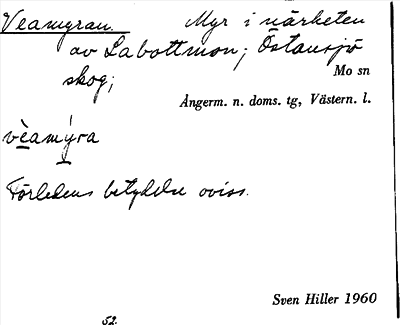 Veamyran. Myr i närheten
av Labottmon; Östansjö
skog;
Mo sn
Angerm. n. doms. tg, Västern. l.
vèamýra
Förledens betydelse oviss.
Sven Hiller 1960
52.